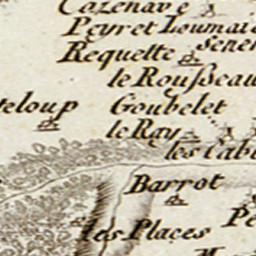 Cazenave
Peyret Loumai
Requette Sener
le Rousseau
teloup Goubelet
le Ray
les Cab
Barrot
les Places Pe